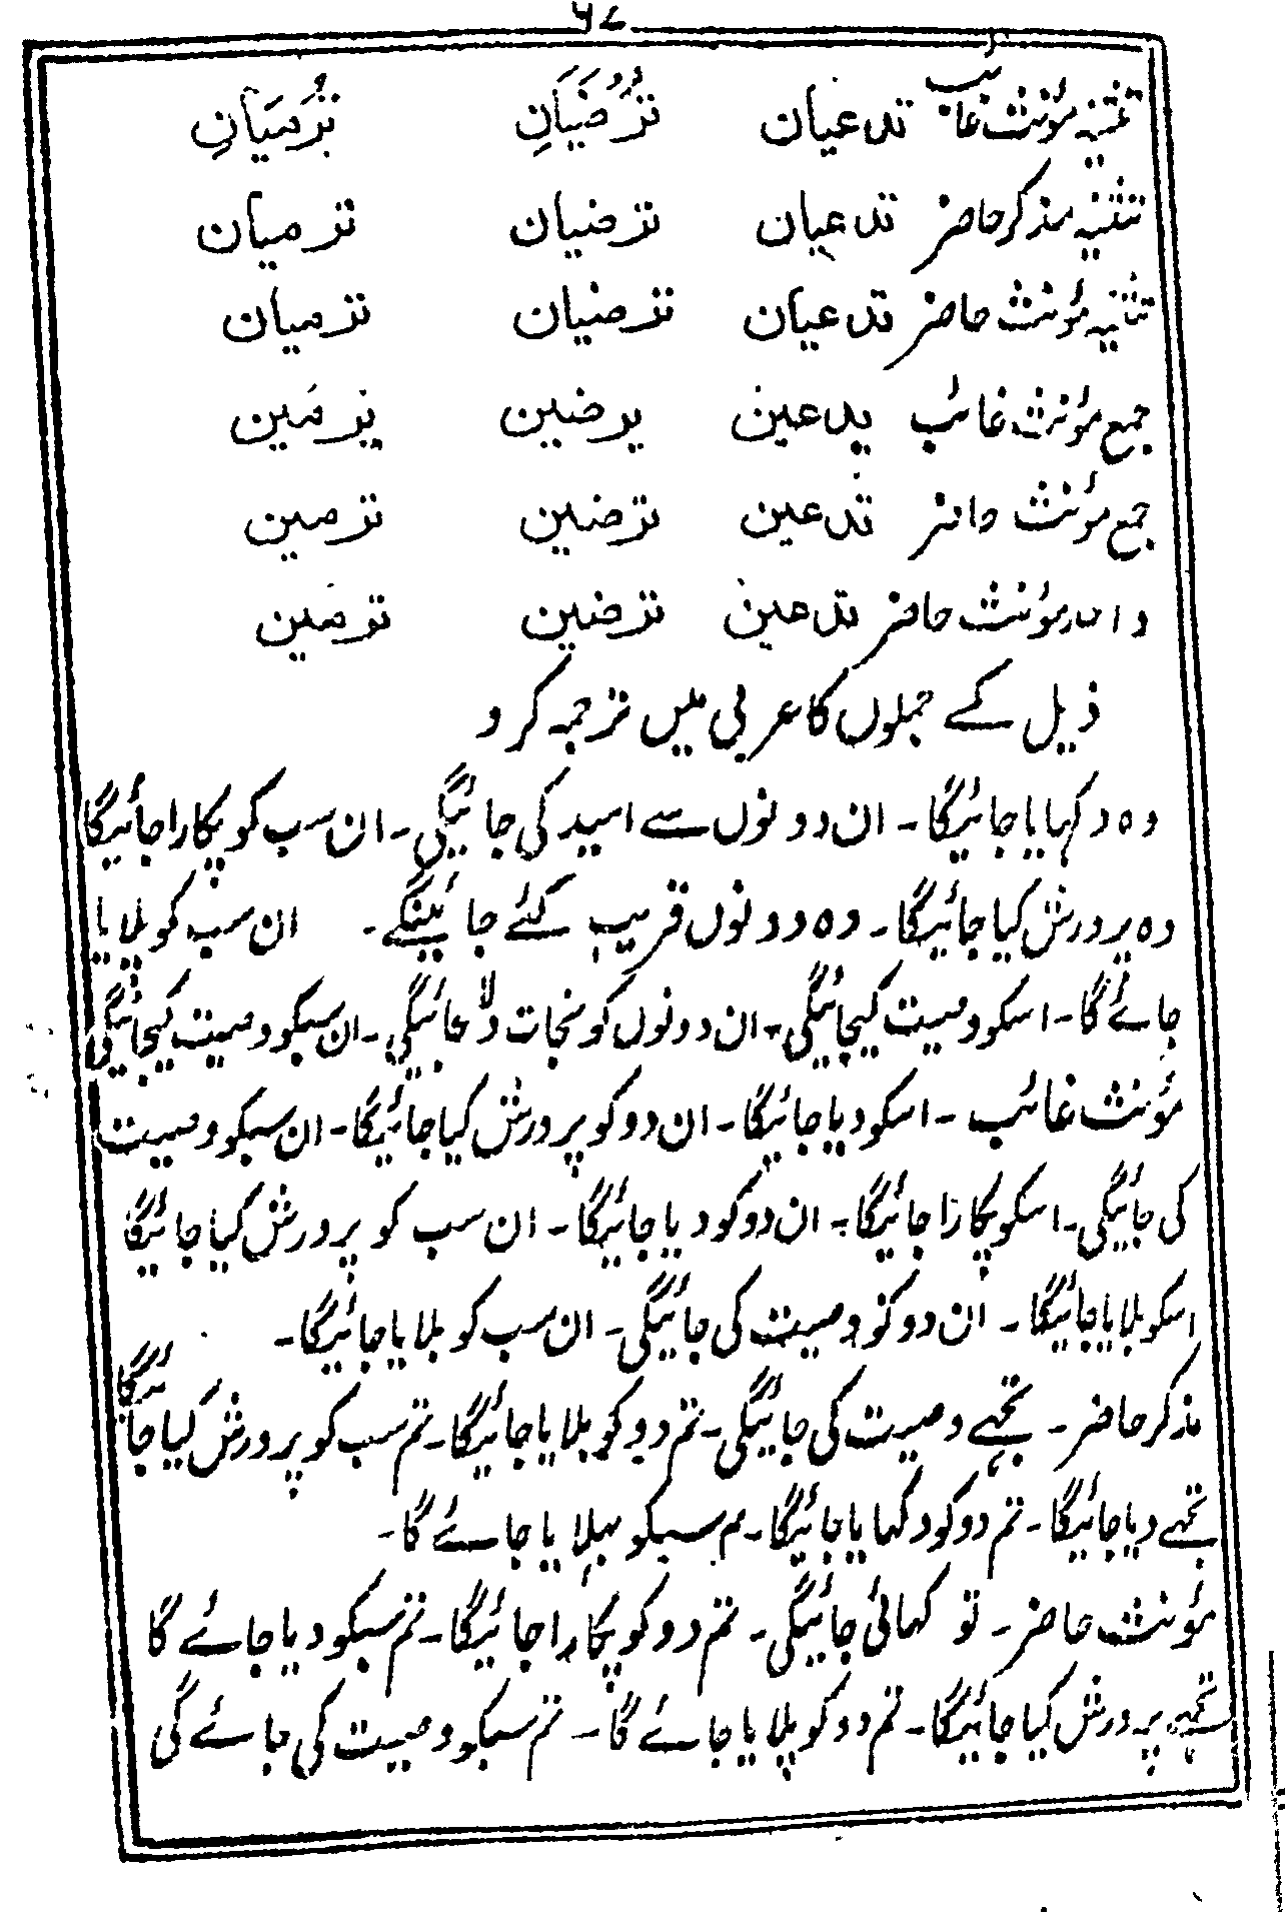 ۶۷
تثنیہ مؤنث غائب تدعیان تُرْضَیَانِ تُرْمَیَانِ
تثنیہ مذکر حاضر تدعیان ترضیان ترمیان
تثنیہ مؤنث حاضر تدعیان ترضیان ترمیان
جمع مؤنث غائب یدعین یرضین یرمَین
جمع مؤنث حاضر تدعین ترضین ترمین
واحد مؤنث حاضر تدعین ترضین ترمین
ذیل کے جملوں کا عربی میں ترجمہ کرو
وہ دکہایا جائیگا۔ ان دونوں سے امید کی جائیگی۔ ان سب کو پکارا جائیگا
وہ پرورش کیا جائیگا۔ وہ دونوں قریب کئے جائینگے۔ ان سب کو بلایا
جائے گا۔ اسکو وصیت کیجائیگی۔ ان دونوں کو نجات دلا جائیگی۔ ان سبکو وصیت کیجائیگی
مؤنث غائب ۔ اسکو دیا جائیگا۔ ان دو کو پرورش کیا جائیگا۔ ان سبکو وصیت
کی جائیگی۔ اسکو پکارا جائیگا۔ ان دو کو دیا جائیگا۔ ان سب کو پرورش کیا جائیگا
اسکو بلایا جائیگا۔ ان دو کو وصیت کی جائیگی۔ ان سب کو بلایا جائیگا۔
مذکر حاضر ۔ تجہے وصیت کی جائیگی۔ تم دو کو بلایا جائیگا۔ تم سب کو پرورش کیا جائیگا
تجہے دیا جائیگا۔ تم دو کو دکہایا جائیگا۔ تم سبکو بہلایا جائے گا۔
مؤنث حاضر ۔ تو کہائی جائیگی۔ تم دو کو پکارا جائیگا۔ تم سبکو دیا جائے گا
تجہے پرورش کیا جائیگا۔ تم دو کو پلایا جائے گا۔ تم سبکو وصیت کی جائے گی